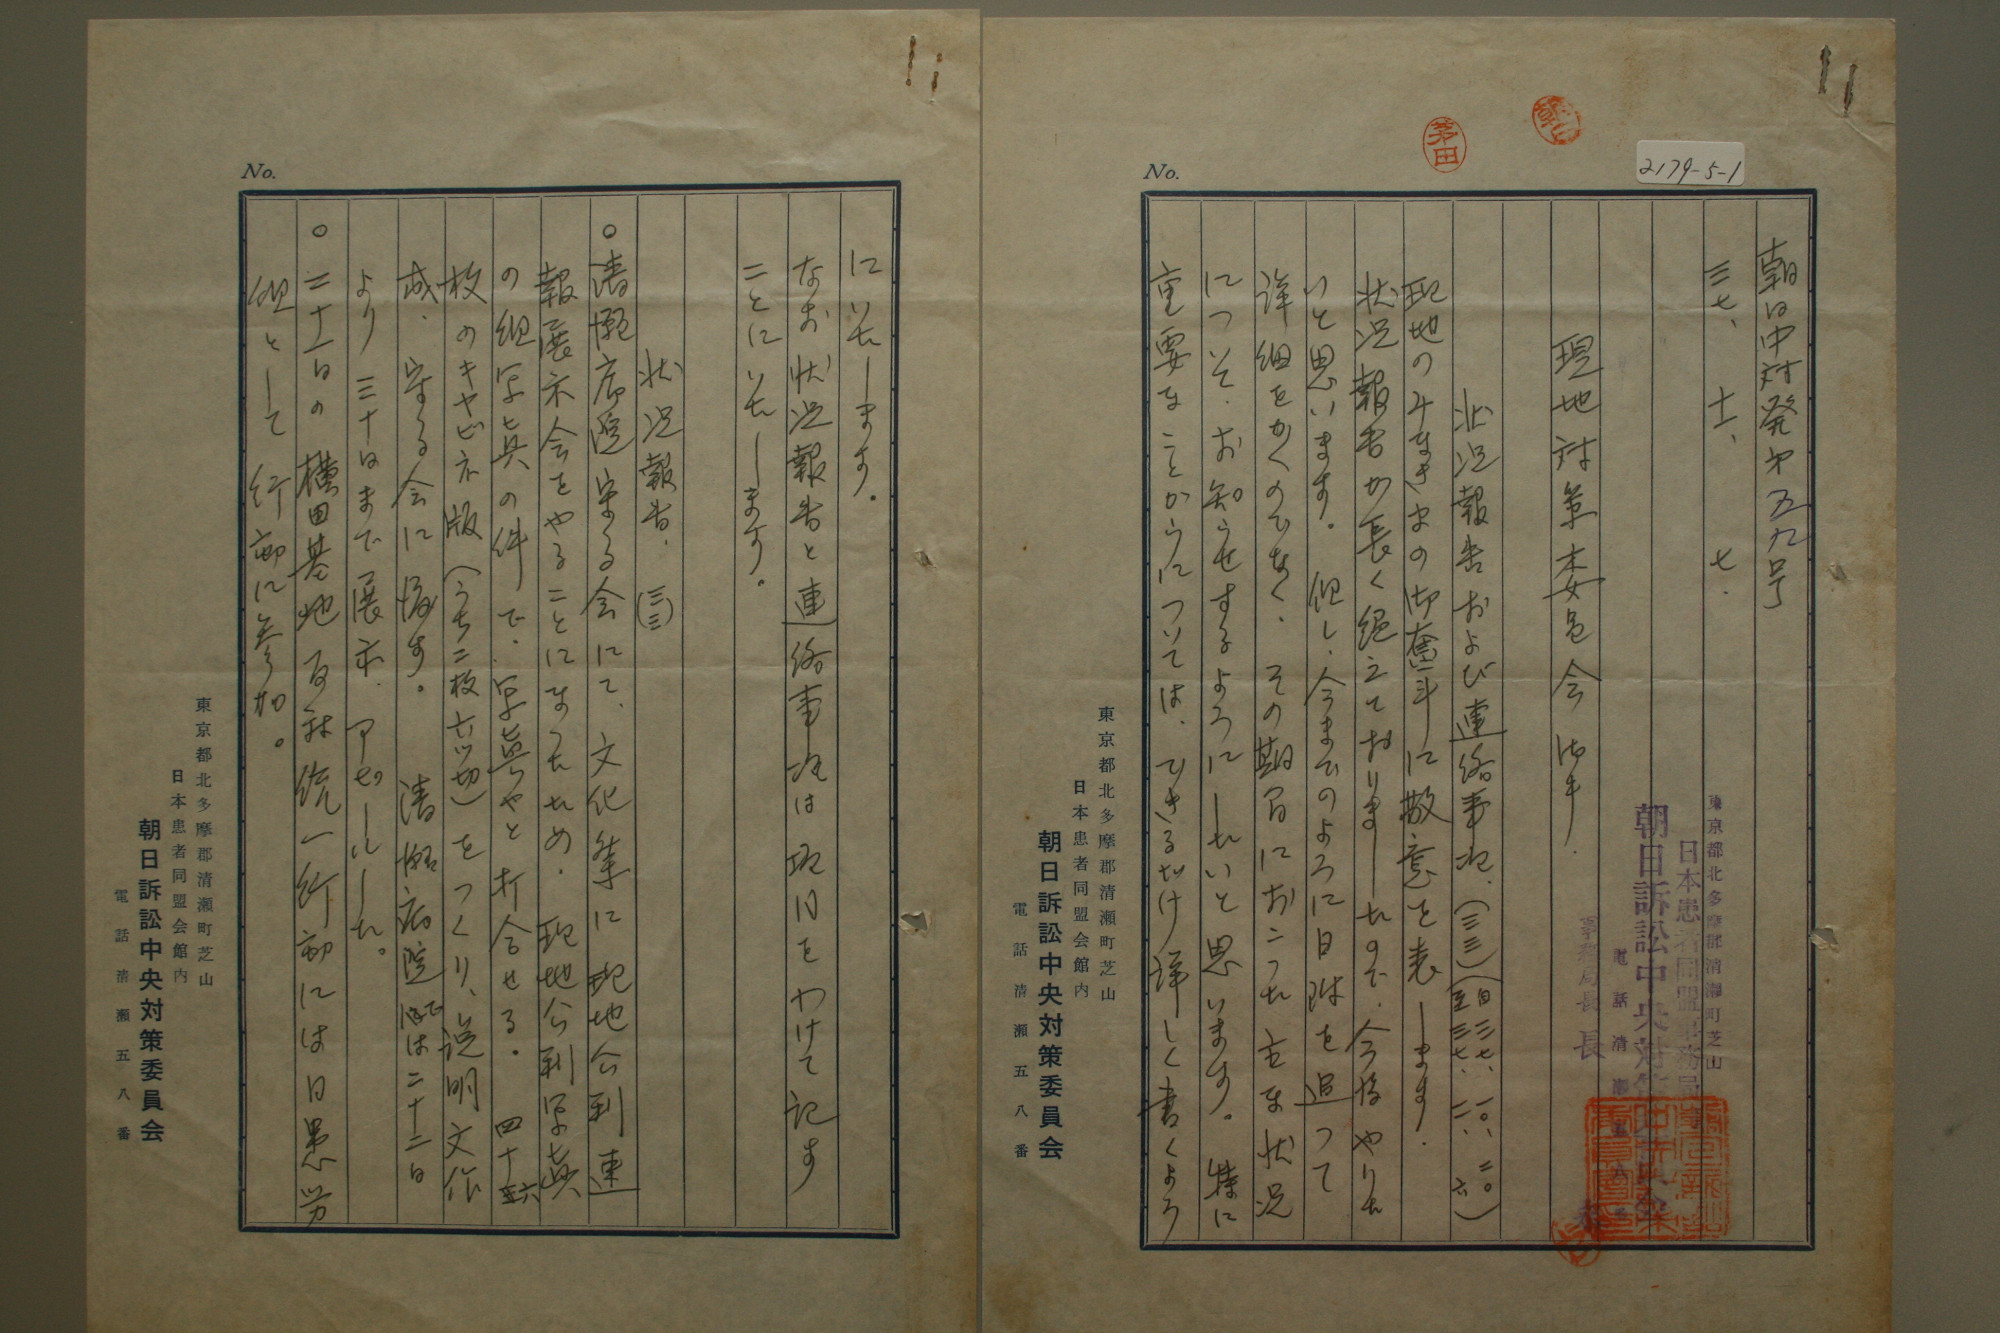 2179-5-1
茅田
No.
朝日中対発第五九号
三七、十一、七、
東京都北多摩郡清瀬町芝山
日本患者同盟事務局
朝日訴訟中央対策
電話清瀬
事務局長 長
現地対策委員会御中
状況報告および連絡事項、(三三)(自三七、一〇、二〇 至三七、一一、六)
現地のみなさまの御奮斗に敬意を表します。
状況報告が長く絶えておりましたので、今後やりた
いと思います。但し、今までのように日附を追って
詳細をかくのでなく、その期間におこった主な状況
について、お知らせするようにしたいと思います。特に
重要なことがらについては、できるだけ詳しく書くよう
東京都北多摩郡清瀬町芝山
日本患者同盟会館内
朝日訴訟中央対策委員会
電話清瀬五八番
No.
にいたします。
なお状況報告と連絡事項は項目をわけて記す
ことにいたします。
状況報告、(三三)
○清瀬病院守る会にて、文化祭に現地公判速
報展示会をやることになったため、現地公判写真
の組写真の件で、写真やと打合せる。四十六
枚のキャビネ版(うち二枚六ツ切)をつくり、説明文作
成、守る会に渡す。清瀬病院では二十二日
より三十日まで展示、アッピールした。
○二十一日の横田基地百対統一行動には日患労
組として行動に参加。
東京都北多摩郡清瀬町芝山
日本患者同盟会館内
朝日訴訟中央対策委員会
電話清瀬五八番